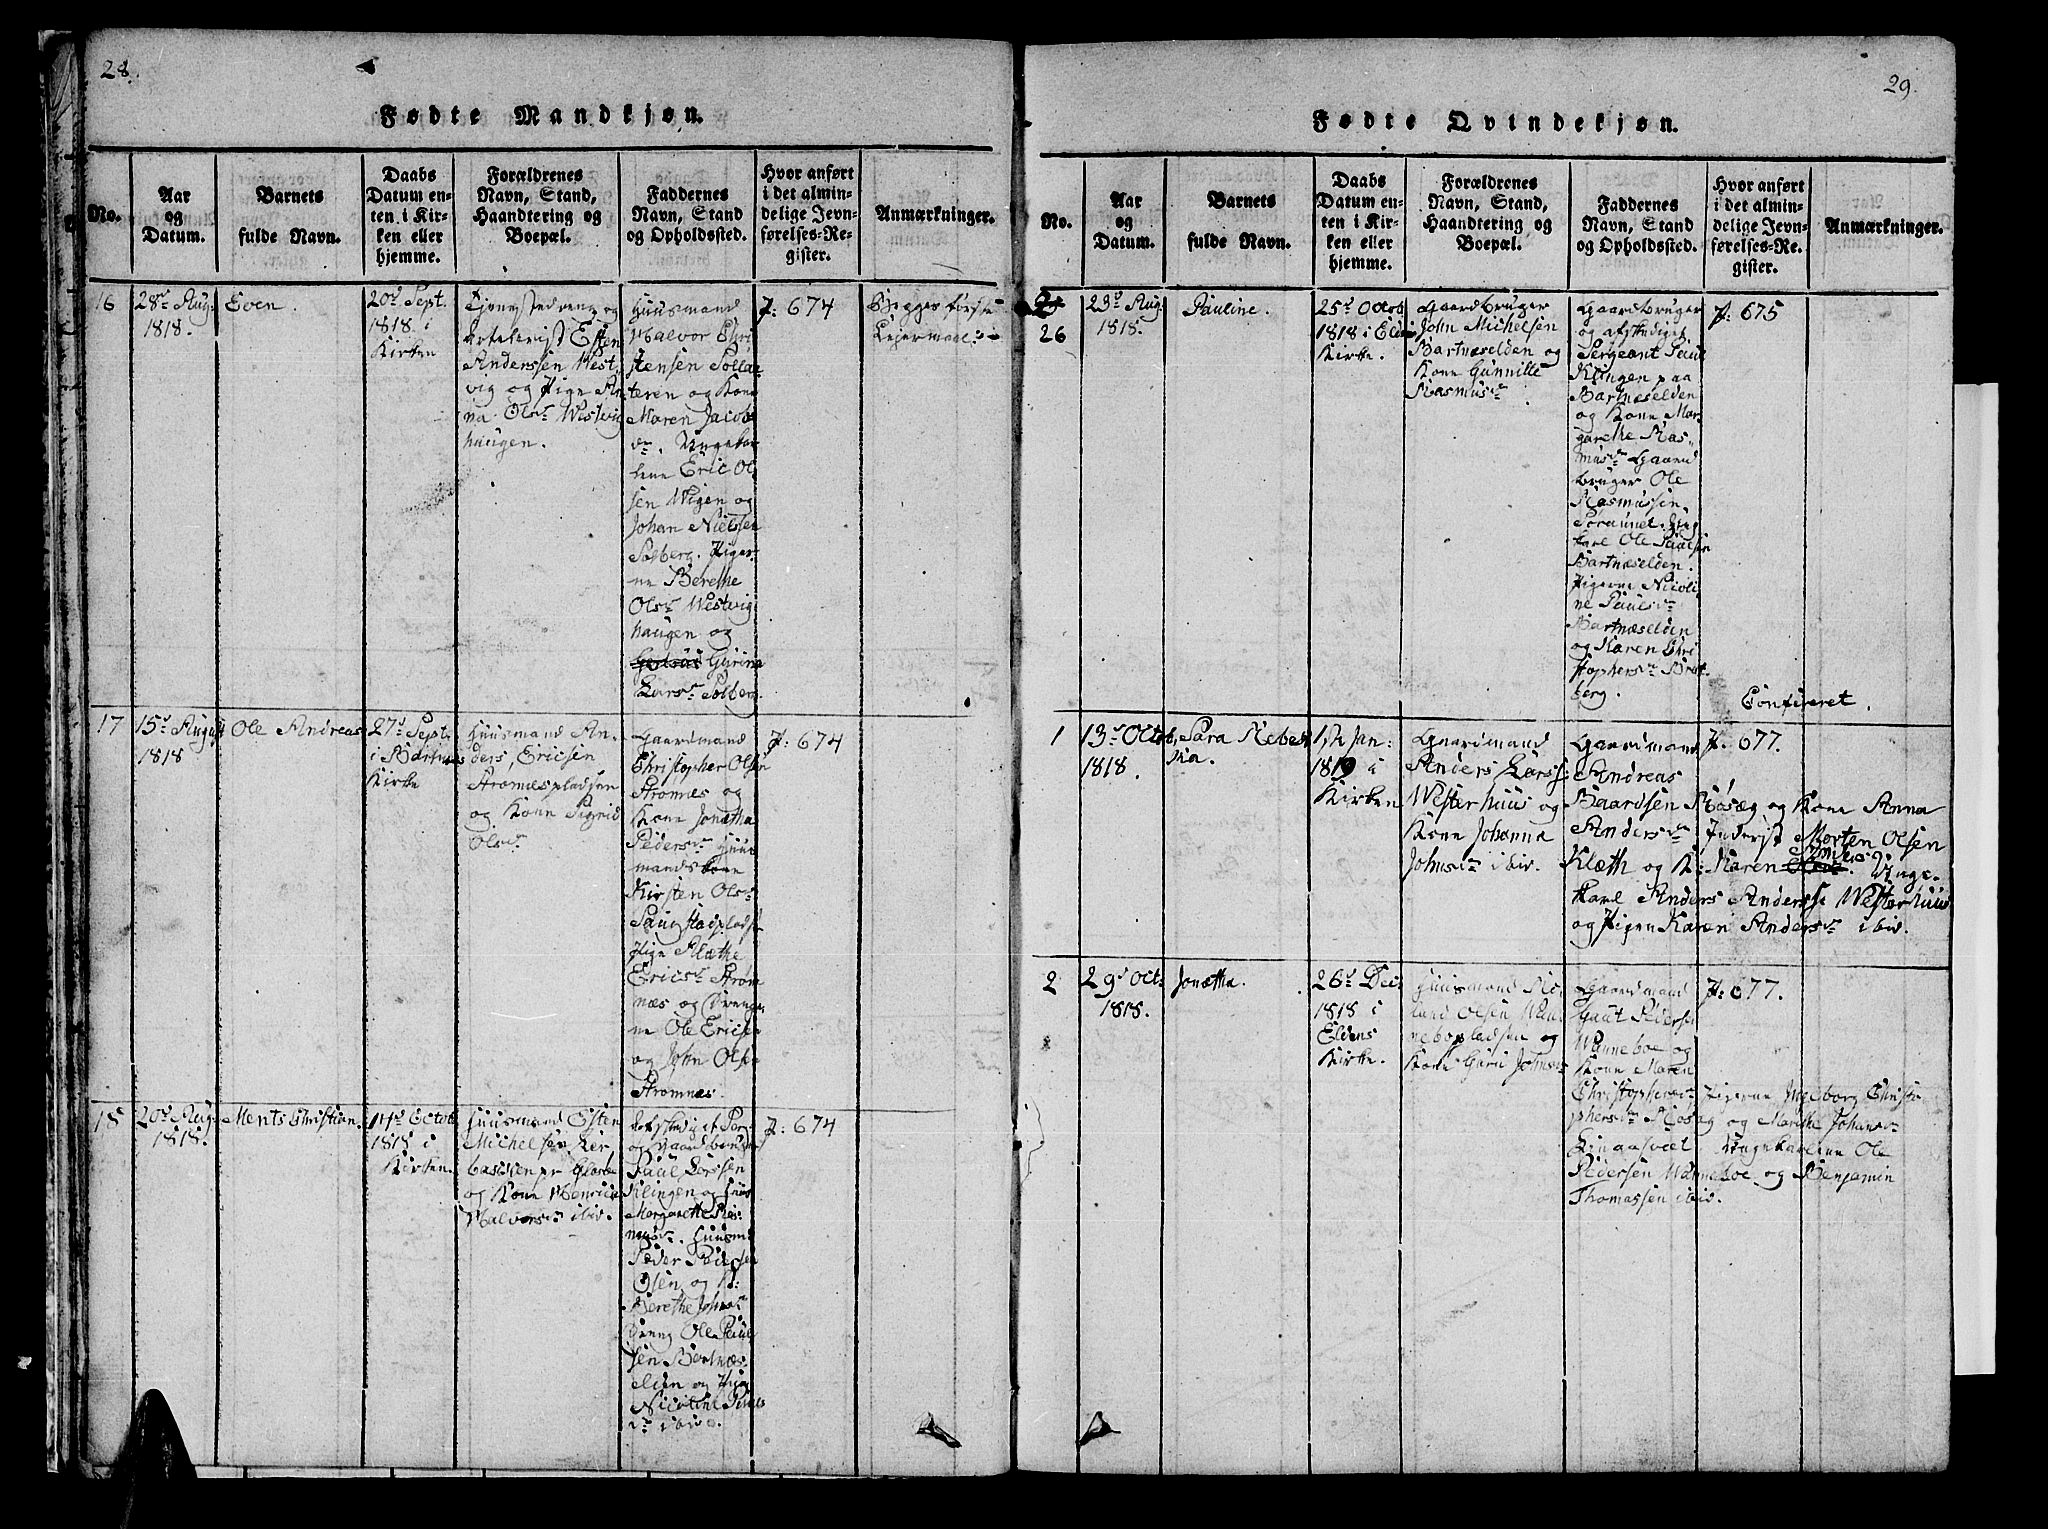 28.
Fødte Mandkjøn.
No.
Aar
og
Datum.
Barnets
fulde Navn.
Daabs
Datum en-
ten i Kir-
ken eller
hjemme.
Forældrenes
Navn, Stand,
Haandtering og
Boepæl.
Faddernes
Navn, Stand
og Opholdssted.
Hvor anført
i det almin-
delige Jevn-
førelses-Re-
gister.
Anmærkninger.
16
28d Aug:
1818.
Even.
20d Sept.
1818. i
Kirken
og
Esten
Anderssen West-
vig og Pige An-
na Olsdr Westvig
haugen.
Huusmand
Halvor Chri
stensen Solla
teren og Kone
Maren Jacobs
dr. Ungekar
lene Eric Ol
sen Wigen og
Johan Nielssen
Solberg. Piger
ne Berethe
Olsdr Westvig
haugen og
Gjertrud Gurina
Larsdr Solberg.
J: 674
Begges første
Lejermaal.
17
15d August
1818
Ole Andreas
27d Sept.
i Bartnæs
Kirke
Huusmand An-
ders Ericsen
Strømnespladsen
og Kone Sigrid
Olsdr
Gaardmand
Christopher Olsen
Strømnæs og
Kone Jonetha
Pedersdr Huus
mandskone
Kirsten Ols-
Saurstadpladse
Pige Marthe
Ericsdr Strøm
næs og Drenge
ne Ole Ericsen
og John Olsen
Strømnæs.
J: 674
18
20d Aug:
1818.
Ments Christian.
14d Octob
1818 i
Kirken.
Huusmand Esten
Michelsen Ler
og Kone Henrica
Halvorsdr ibid.
Afskediget Ser-
og Gaardbruger
Paul Larssen
Klingen og Kone
Margarethe Ras
musdr. Huusm:
Peder Pedersen
Olsen og K:
Berethe Johnsdr
Dreng Ole Paul
sen Bartnæs-
elden og Pige
Nicoline Pauls
dr ibid.
J: 674
29.
Fødte Qvindekjøn.
No.
Aar
og
Datum.
Barnets
fulde Navn.
Daabs
Datum en-
ten i Kir-
ken eller
hjemme.
Forældrenes
Navn, Stand,
Haandtering og
Boepæl.
Faddernes
Navn, Stand
og Opholdssted.
Hvor anført
i det almin-
delige Jevn-
førelses-Re-
gister.
Anmærkninger.
26
23d Aug
1818.
Pauline.
25d Octob
1818 i Elden
Kirke.
Gaardbruger
John Michelsen
Bartnæselden og
Kone Gunnille
Rasmusdr
Gaardbruger
og afskediget
Sergeant Paul
Klingen paa
Bartnæselden
og Kone Mar-
garethe Ras-
musdr Gaard
bruger Ole
Rasmussen
Ung
karl Ole Paulsen
Bartnæselden.
Pigerne Nicoli
ne Paulsdr
Bartnæselden
og Karen Chri
stophersdr Bret
berg.
J: 675
Confereret.
1
13d Octob.
1818.
Sara Rebec
ka.
1ste Jan:
1819 i
Kirken
Gaardmand
Anders Larss:
Westerhuus og
Kone Johanna
Johnsdr ibid.
Gaardmand
Andreas
Baardsen Røsæg og Kone Anna
Andersdr Inderist Morten Olsen
Klæth og K: Karen Andersd. Unge-
karl Anders Anderss: Westerhuus
og Pigen Karen Andersdr ibid.
J: 677.
2
29d Oct:
1818.
Jonetha.
26d Dec:
1818 i
Eldens
Kirke.
Huusmand Ro-
land Olsen Wan-
nebopladsen og
Kone Guru Johnsdr
Gaardmand
Gaut Pedersen
Wanneboe og
Kone Maren
Christophersdr Pigerne Ingeborg Christo
phersdr Røsæg og Marethe Johansdr
Linaasvæt Ungekarlene Ole
Pedersen Wanneboe og Benjamin
Thomassen ibid.
J: 677.